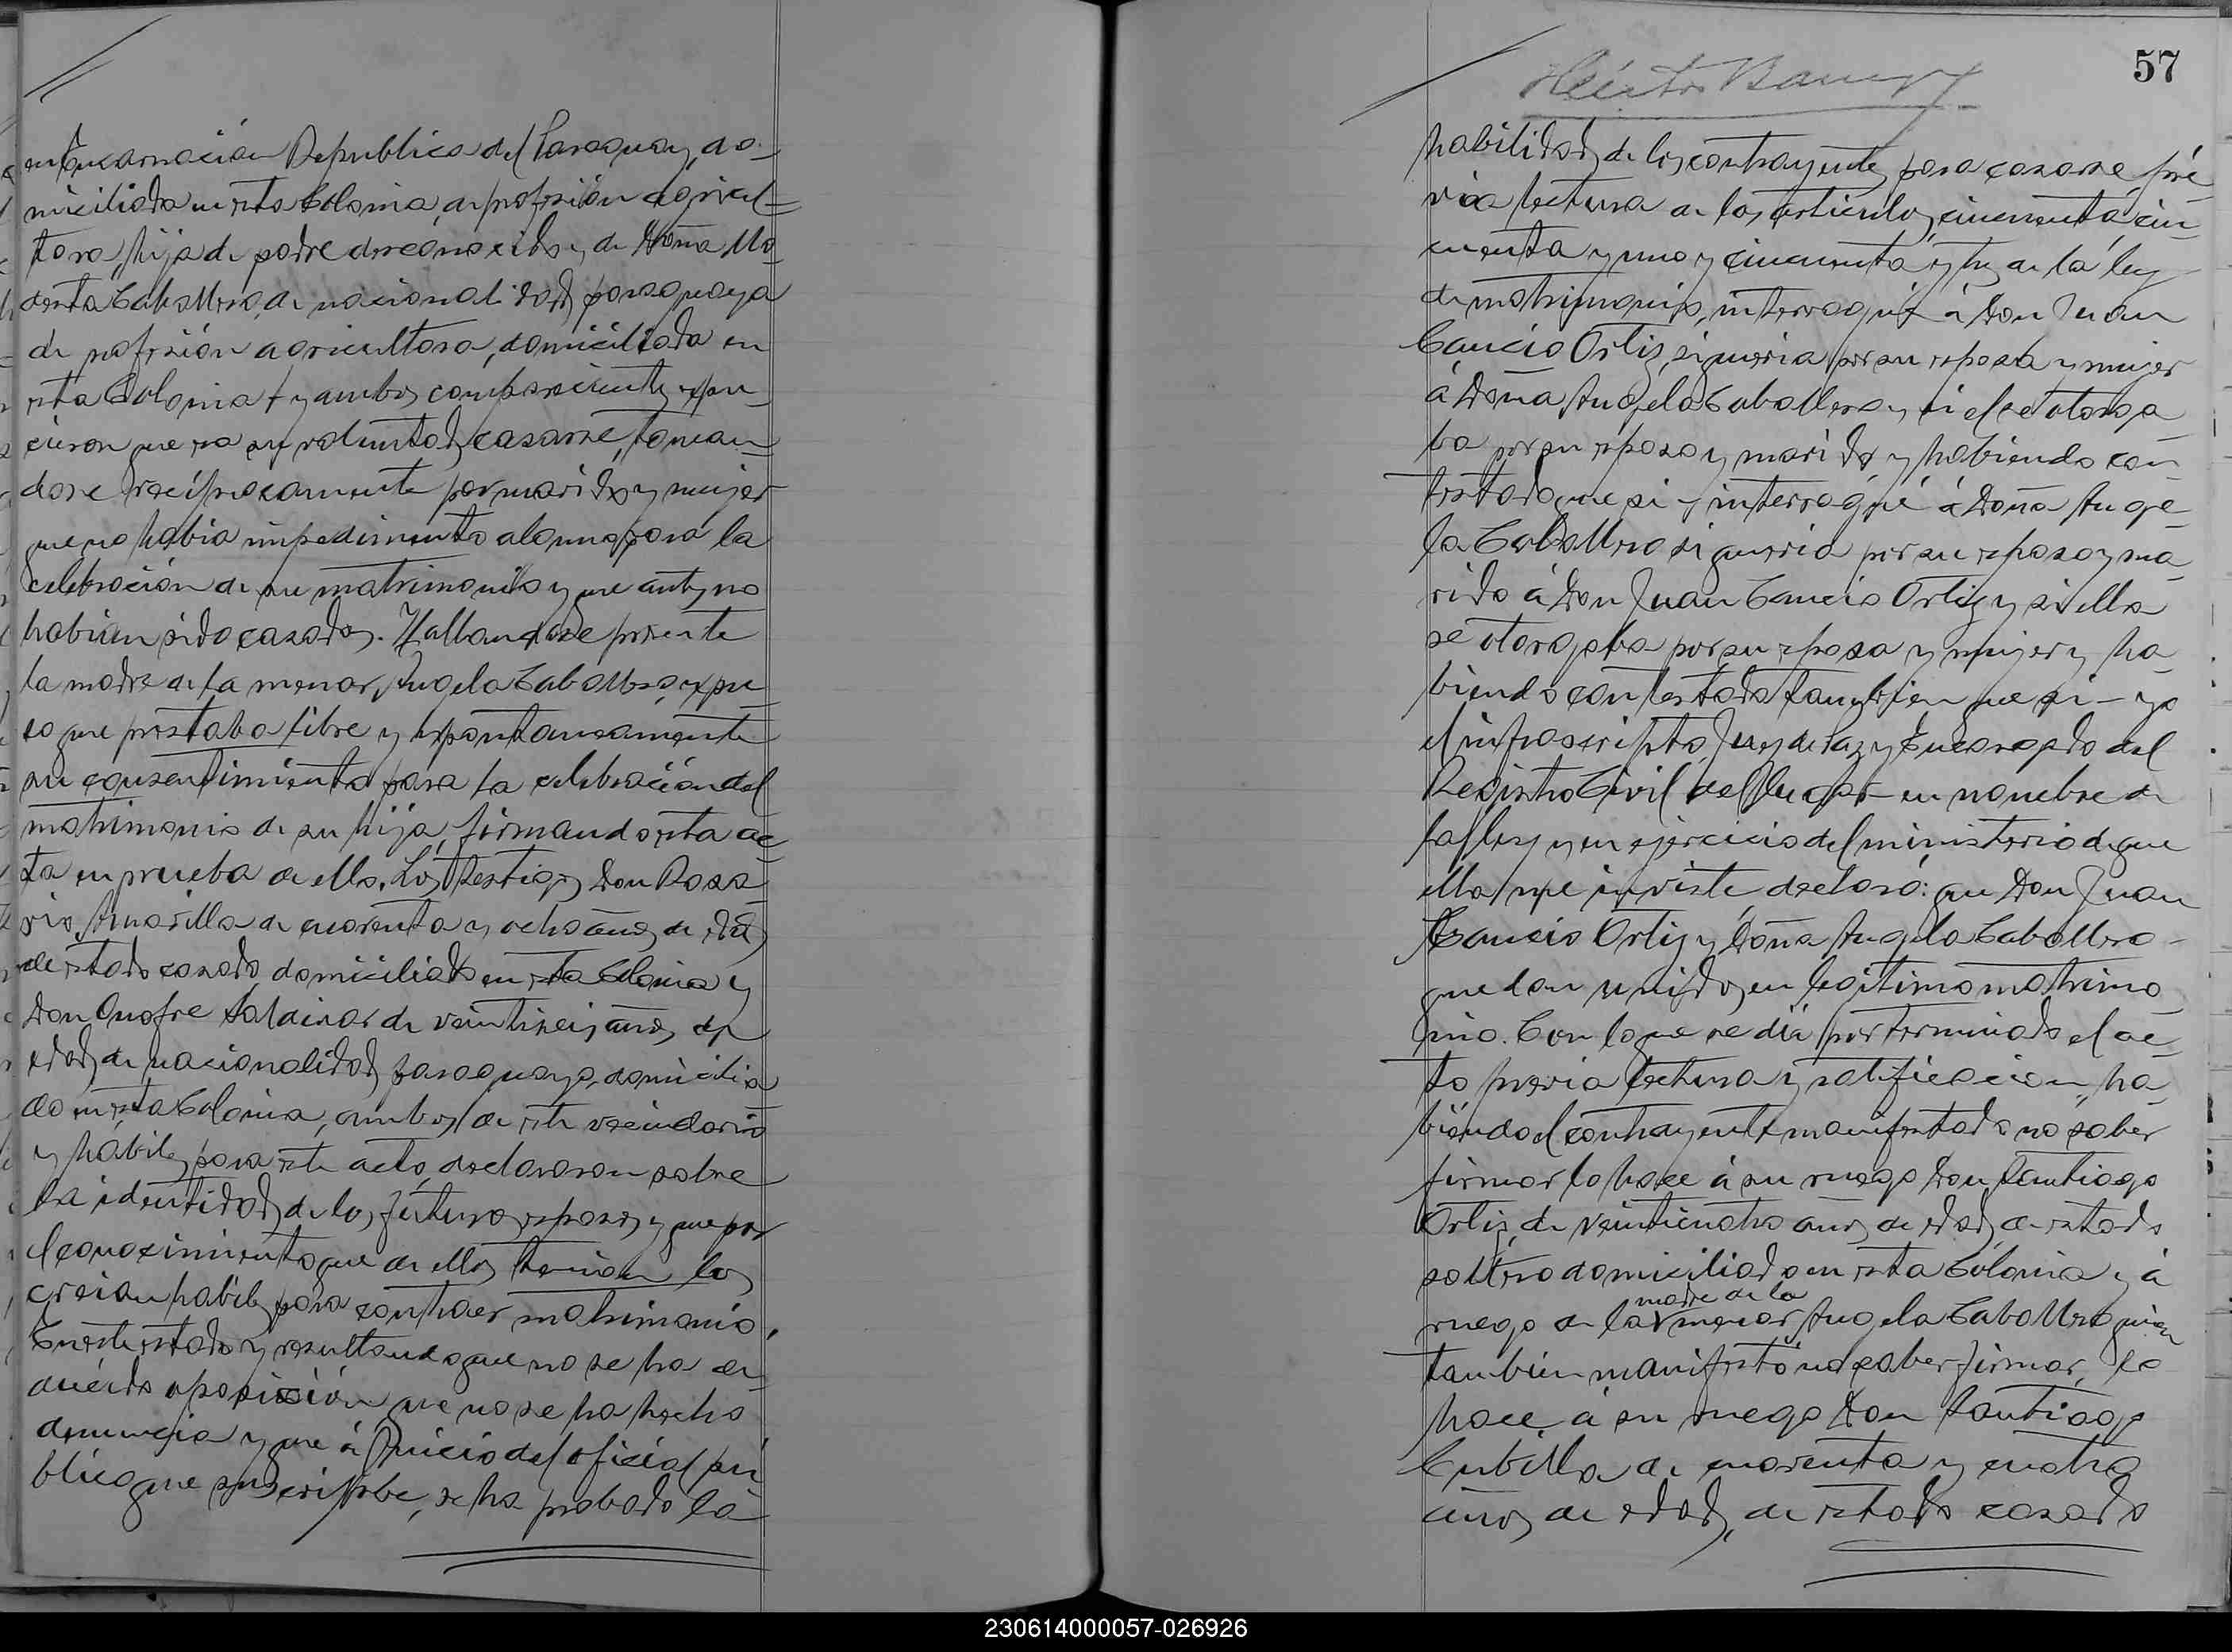 en Encarnación Republica del Paraguay, do-
miciliada en esta Colonia, de profesión agricul-
tora, hija de padre desconocido y de Doña Mo-
desta Caballero, de nacionalidad paraguaya
de profesión agricultora, domiciliada en
esta Colonia + y ambos comparecientes expu-
cieron que era su voluntad casarse, toman-
dose reciprocamente por marido y mujer
que no habia impedimento alguno para la
celebración de su matrimonio y que antes no
habian sido casados. Hallandose presente
la madre de la menor, Angela Caballero, expu-
so que prestaba libre y espontaneamente
su consentimiento para la celebración del
matrimonio de su hija, firmando esta ac-
ta en prueba de ello. Los testigos Don Rosa-
rio Amarilla de cuarenta y ocho años de edad,
de estado casado, domiciliado en esta Colonia y
Don Onofre Saldivar de veintiseis años de
edad, de nacionalidad paraguayo, domicilia-
do en esta Colonia, ambos de este vecindario
y hábiles para este acto, declararon sobre
la identidad de los futuros esposos y que por
el conocimiento que de ellos tenian los
creian habiles para contraer matrimonio.
En este estado y resultando que no se ha de-
ducido oposición que no se ha hecho
denuncia y que á Juicio del oficial pú-
blico que suscribe, se ha probado la
57
Héctor
habilidad de los contrayentes para casarse, pré-
via lectura de los articulos cincuenta, cin-
cuenta y uno y cincuenta y tres de la ley
de matrimonio, interrogué á Don Juan
Cancio Ortiz, si queria por su esposa y mujer
á Doña Angela Caballero y si el se otorga-
ba por su esposo y marido y habiendo con-
testado que si - interrogué á Doña Ange-
la Caballero si queria por su esposo y ma-
rido á Don Juan Cancio Ortiz y si ella
se otorgaba por su esposa y mujer y ha-
biendo contestado tambien que si - yo
el infrascripto, Juez de Paz y Encargado del
Registro Civil del lugar - en nombre de
la ley y en ejercicio del ministerio de que
ella me inviste, declaro: que Don Juan
Cancio Ortiz y Doña Angela Caballero -
quedan unidos en legitimo matrimo-
nio. Con lo que se dió por terminado el ac-
to previa lectura y ratificacion, ha-
biendo el contrayente manifestado no saber
firmar lo hace á su ruego Don Santiago
Ortiz, de veinticuatro años de edad, de estado
soltero domiciliado en esta Colonia y á
madre de la
ruego de la menor Angela Caballero quien
tambien manifestó no saber firmar, lo
hace á su ruego Don Santiago
Cubilla de cuarenta y cuatro
años de edad, de estado casado
230614000057-026926